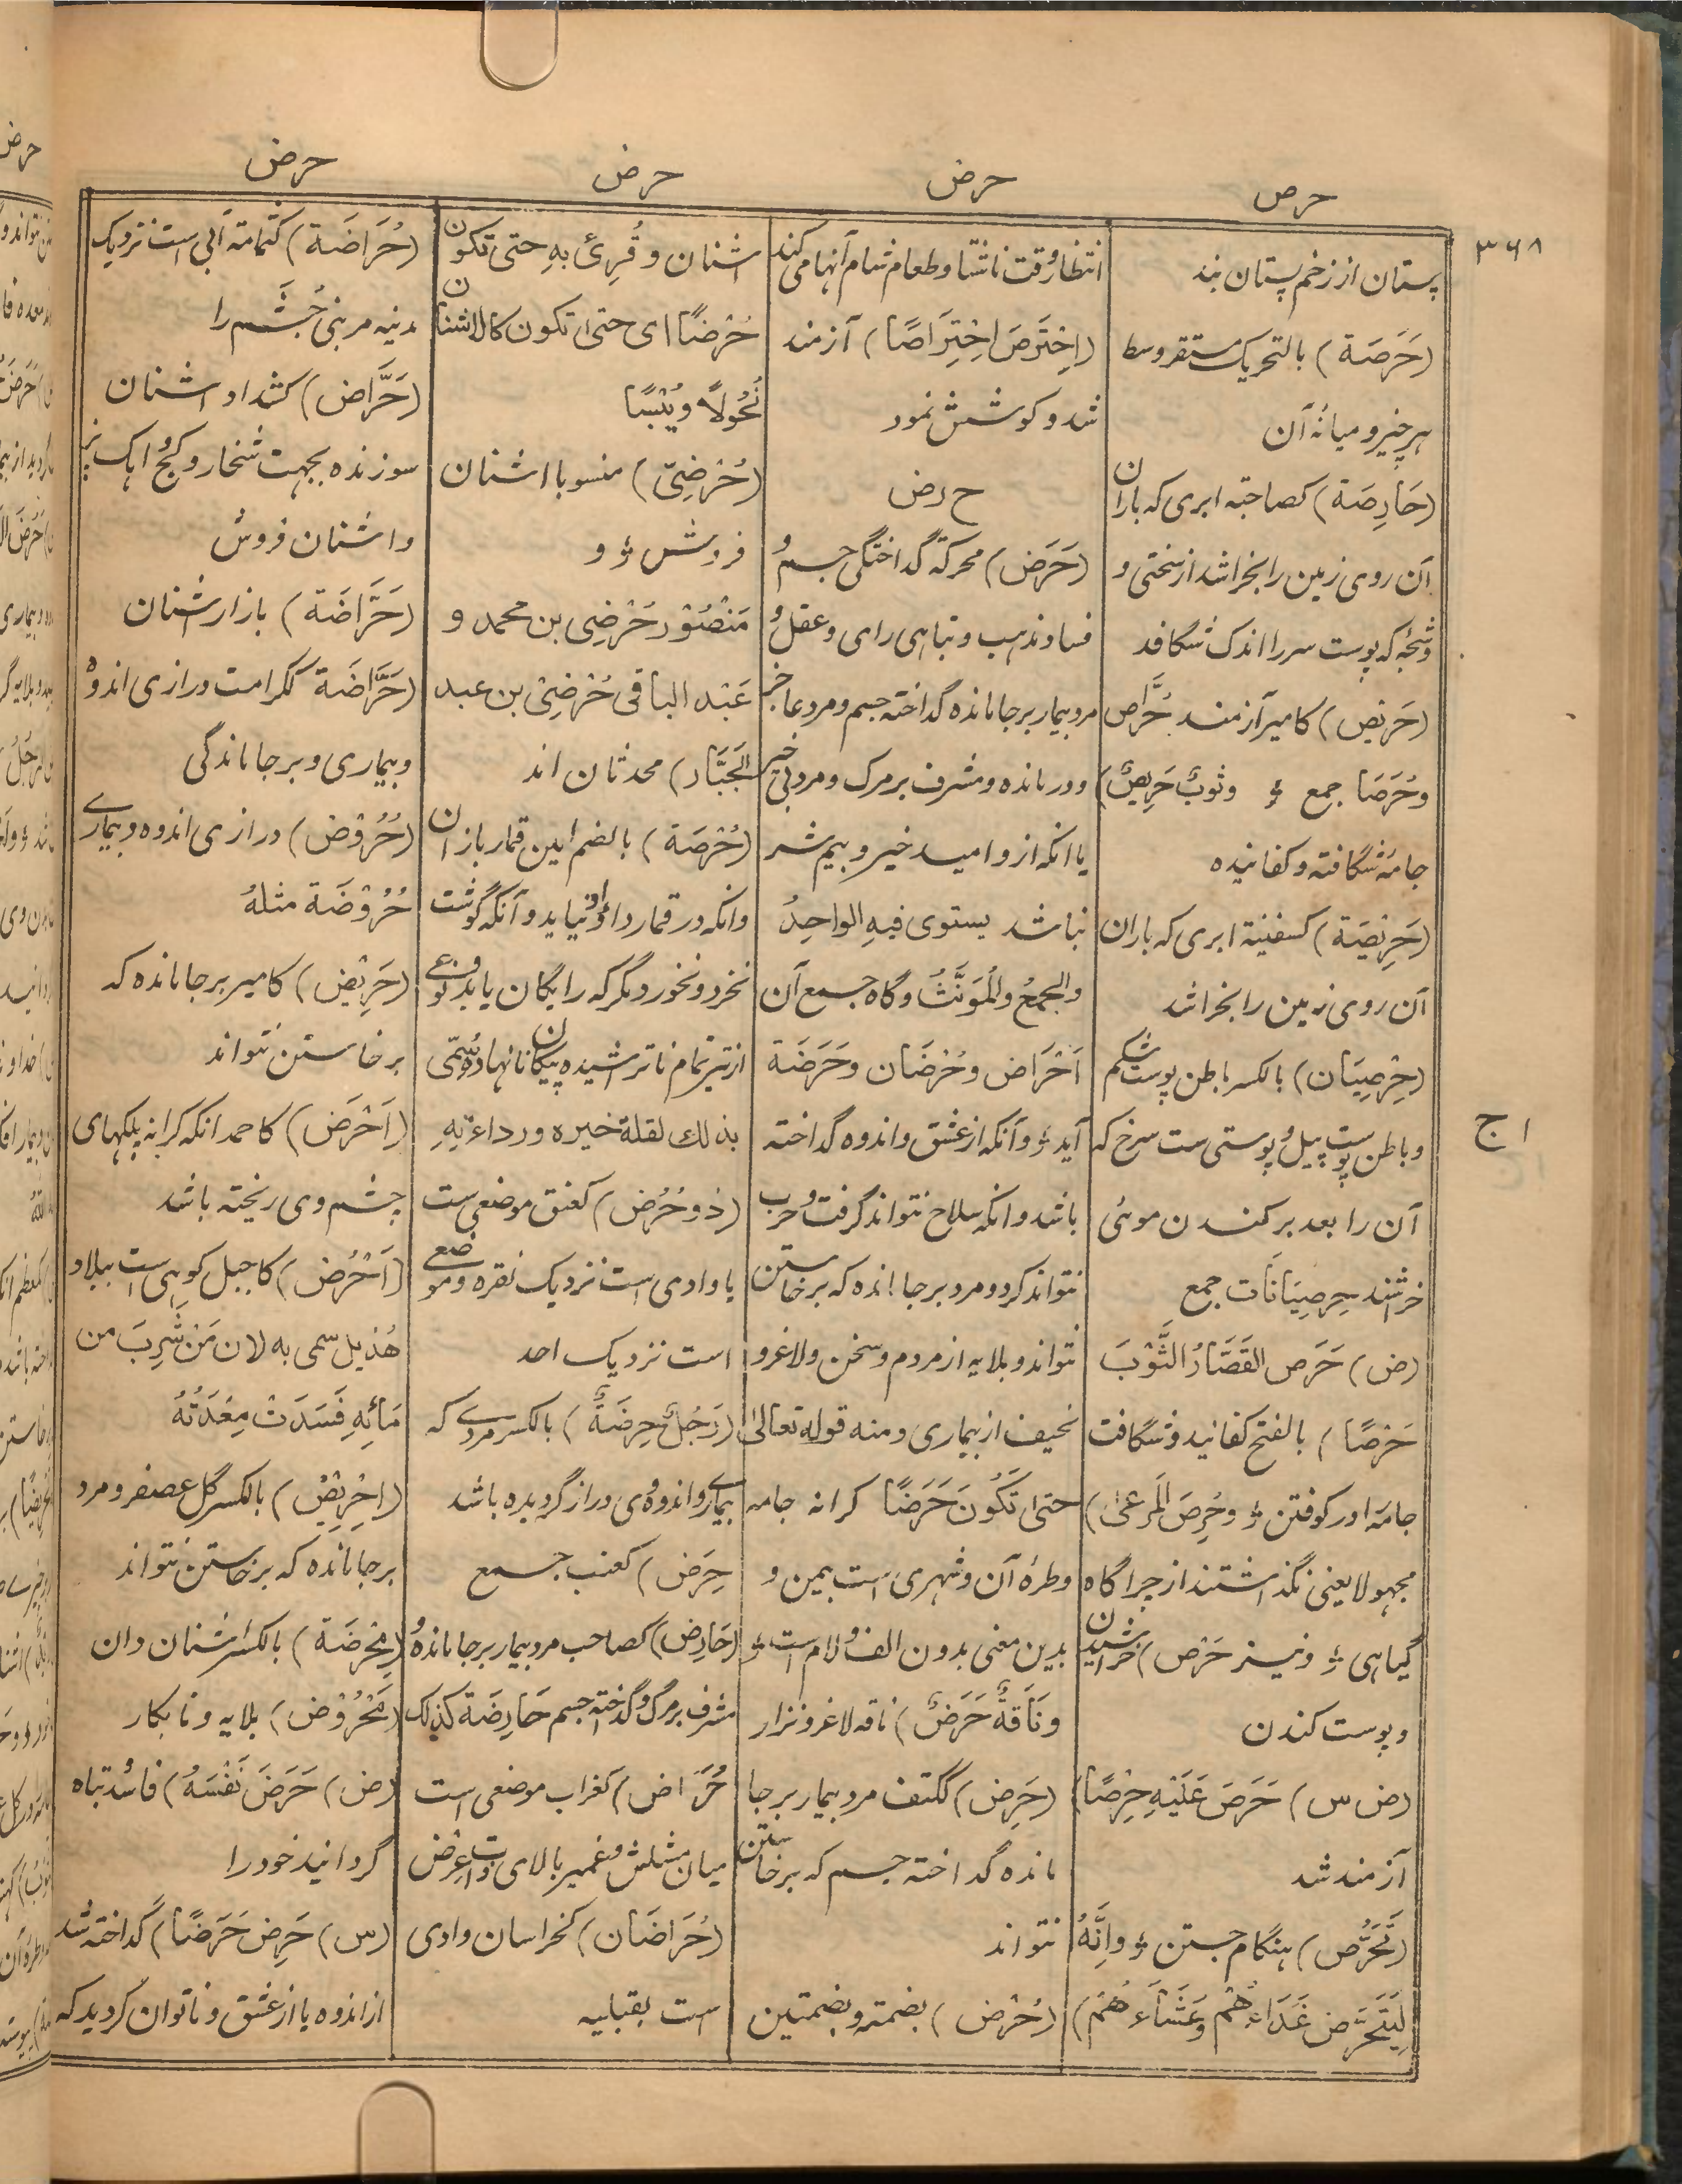 حرص
حرض
حرض
حرض
۳۶۸
پستان از زخم پستان بند
(حَرَصَة) بالتحریک مستقر وسط
هر چیز و میانهٔ آن
(حَارِصَة) کصاحبة ابری که باران
آن روی زمین را بخراشد از سختی و
شجّه که پوست سر را اندک شگافد
(حَرِیْص) کامیر آزمند حُرَّاص
وحُرَصَا جمع و وثوبٌ حَرِیصٌ)
جامهٔ شگافته و کفانیده
(حَرِیْصَة) کسفینة ابری که باران
آن روی زمین را بخراشد
(حِرْصِیَان) بالکسر باطن پوست شکم
و باطن پوست پیل و پوستی ست سرخ که
آن را بعد برکندن موئی
خراشند حِرصِیَانَات جمع
(ض) حَرَص القَصَّارُ الثَّوْبَ
حَرْصًا) بالفتح کفانید و شگافت
جامه را در کوفتن و وحُرِصَ المَرعیٰ)
مجهولا یعنی نگذاشتند از چراگاه
گیاهی و ونیز حَرْص) خراشیدن
و پوست کندن
(ض س) حَرَصَ عَلَیْهِ حِرْصًا)
آزمند شد
(تَحَرُّص) هنگام جستن و واِنَّهُ
لِیَتَحَرَّص غَدَاءَهُمْ وعَشَاءَهُمْ)
انتظار وقت ناشتا و طعام شام آنها می کند
(اِحْتَرَصَ اِحْتِرَاصًا) آزمند
شد و کوشش نمود
ح رض
(حَرَض) محرکة گداختگی جسم و
فساد مذهب و تباهی رای و عقل و
مرد بیمار بر جا مانده گداخته جسم و مرد عاجز
و درمانده و مشرف بر مرگ و مرد بی خیر
یا انکه ازو امید خیر و بیم شر
نباشد یستوی فیهِ الواحِدُ
والجمعُ والمُوَنَّثُ و گاه جمع آن
اَحْرَاض وحُرْضَان وحَرَضَة
آید و وآنکه از عشق و اندوه گداخته
باشد و انکه سلاح نتواند گرفت و حرب
نتواند کرد و مرد بر جا مانده که برخاستن
نتواند و بلایه از مردم و سخن و لاغر و
نحیف از بیماری و منه قوله تعالیٰ
حتی تَکُونَ حَرَضًا کرانه جامه
و طرهٔ آن و شهری است بیمن و
بدین معنی بدون الف ولام است و
ونَاقَةٌ حَرَضٌ) ناقه لاغر و نزار
(حَرِض) ککتف مرد بیمار بر جا
مانده گداخته جسم که برخاستن
نتواند
(حُرْض) بضمة و بضمتین
اشنان وقُرِئ بهِ حتی تکون
حُرْضًا ای حتی تکون کالاشنان
نُحُولاً ویُبْسًا
(حُرْضِیّ) منسوب با اشنان
فروش و و
مَنْصُوْر حُرْضِی بن محمد و
عَبْد الباقی حُرْضِیْ بن عبد
الجَبَّار) محدثان اند
(حُرْضَة) بالضم امین قمار بازان
وانکه در قمار داو او نیاید و آنکه گوشت
نخرد و نخورد مگر که رایگان یابد و نوعی
از تیر تمام ناتراشیده پیکان نانهاده سُمّی
بذلك لقلة خیره ورداءتهِ
(ذو حُرُض) کعنق موضعی ست
یا وادی است نزدیک نقره و موضعی
است نزدیک احد
(رَجُلٌ حِرضَةٌ) بالکسر مردے که
بیماری و اندوه وی دراز گردیده باشد
حِرَض) کعنب جمع
(حَارِض) کصاحب مرد بیمار بر جا مانده و
مشرف بر مرگ و گداخته جسم حَارِضَة کذلک
حُرَاض) کغراب موضعی است
میان مشاش و غمیر بالای ذات عرض
(حُرَاضَان) کخراسان وادی
است بقبلیه
(حُرَاضَة) کثمامة آبی است نزدیک
مدینه مر بنی جُشَم را
(حَرَّاض) کشداد اشنان
سوزنده بجهت شخار و گچ و اهک پز
و اشنان فروش
(حَرَّاضَة) بازار اشنان
(حَرَاضَة) ککرامت درازی اندوه
و بیماری و بر جا ماندگی
(حُرُوْض) درازی اندوه و بیمارے
حُرُوْضَة مثلهُ
(حَرِیْض) کامیر بر جا مانده که
برخاستن نتواند
(اَحْرَض) کاحمد انکه کرانه پلکهای
چشم وی ریخته باشد
(اَحْرُض) کاجبل کوهی است ببلاد
هُذیل سمی به لان مَنْ شَرِبَ من
مَائِهِ فَسَدَتْ مِعْدَتُهُ
(اِحْرِیْض) بالکسر گل عصفر و مرد
بر جا مانده که برخاستن نتواند
(مِحْرَضَة) بالکسر اشنان دان
(مَحْرُوْض) بلایه و نابکار
(ض) حَرَضَ نَفْسَهُ) فاسد تباه
گردانید خود را
(س) حَرِض حَرَضًا) گداخته شد
از اندوه یا از عشق و ناتوان گردید که
ا ج